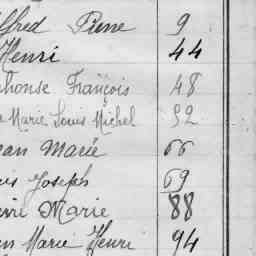 lfred Pierre 9
Henri 44
phonse François 48
Marie Louis Michel 52
ean Marie 66
uis Joseph 69
enri Marie 88
en Marie Henri 94